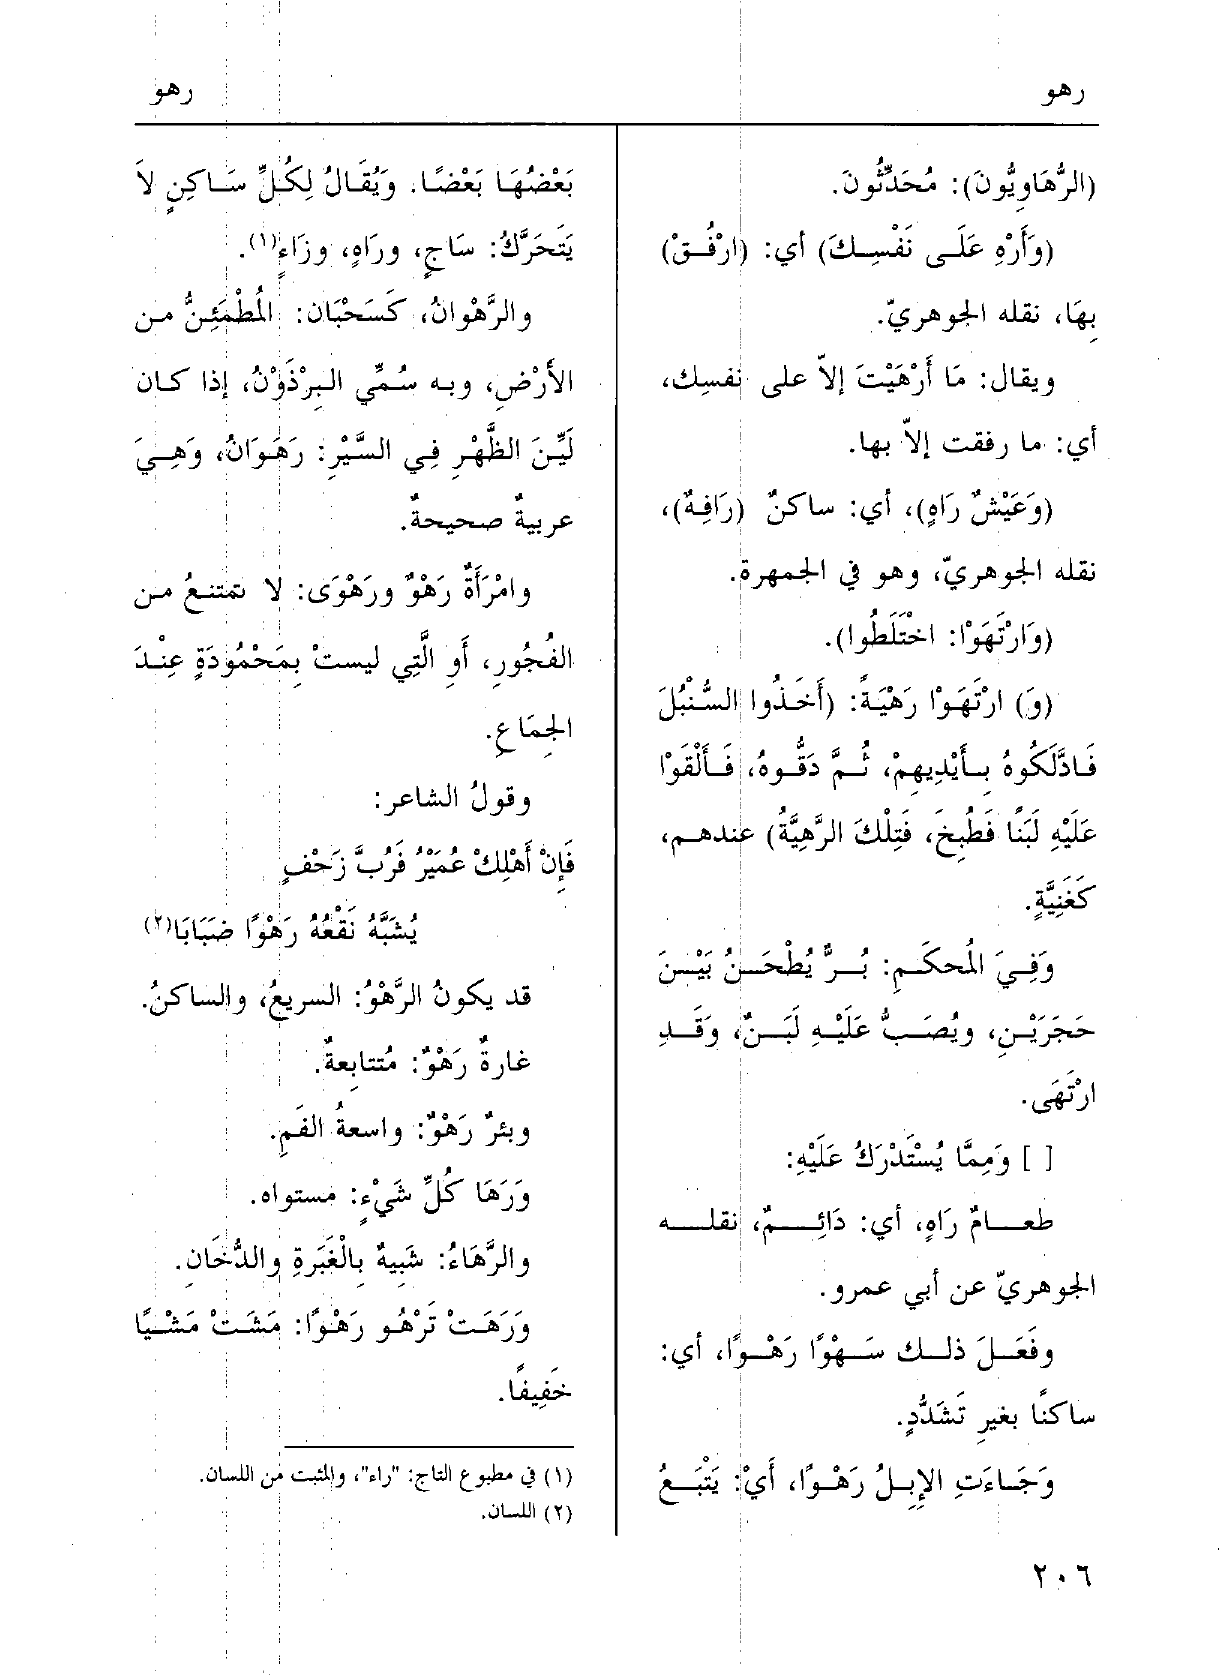 رهو
رهو
(الرُّهَاوِيُّونَ): مُحَدِّثُونَ.
(وَأَرْهِ عَلَى نَفْسِكَ) أي: (ارْفُقْ)
بِهَا، نقله الجوهريّ.
ويقال: مَا أَرْهَيْتَ إلاّ على نفسِك،
أي: ما رفقت إلاّ بها.
(وَعَيْشٌ رَاهٍ)، أي: ساكنٌ (رَافِهٌ)،
نقله الجوهريّ، وهو في الجمهرة.
(وَارْتَهَوْا: اخْتَلَطُوا).
(وَ) ارْتَهَوْا رَهْيَةً: (أَخَذُوا السُّنْبُلَ
فَادَّلَكُوهُ بِأَيْدِيهِمْ، ثُمَّ دَقُّوهُ، فَأَلْقَوْا
عَلَيْهِ لَبَنًا فَطُبِخَ، فَتِلْكَ الرَّهِيَّةُ) عندهم،
كَغَنِيَّةٍ.
وَفِيَ الْمُحكَمِ: بُرٌّ يُطْحَنُ بَيْنَ
حَجَرَيْنِ، ويُصَبُّ عَلَيْهِ لَبَنٌ، وَقَدِ
ارْتَهَى.
[ ] وَمِمَّا يُسْتَدْرَكُ عَلَيْهِ:
طعامٌ رَاهٍ، أي: دَائِمٌ، نقله
الجوهريّ عن أبي عمرو.
وفَعَلَ ذلك سَهْوًا رَهْوًا، أي:
ساكنًا بغيرِ تَشَدُّدٍ.
وَجَاءَتِ الإِبِلُ رَهْوًا، أَيْ: يَتْبَعُ
بَعْضُهَا بَعْضًا. وَيُقَالُ لِكُلِّ سَاكِنٍ لاَ
يَتَحَرَّكُ: سَاجٍ، ورَاهٍ، وزَاءٍ(١).
والرَّهْوانُ، كَسَحْبَان: الْمُطْمَئِنُّ من
الأَرْضِ، وبه سُمِّي البِرْذَوْنُ، إذا كان
لَيِّنَ الظَّهْرِ فِي السَّيْرِ: رَهَوَانُ، وَهِيَ
عربيةٌ صحيحةٌ.
وامْرَأَةٌ رَهْوٌ ورَهْوَى: لا تمتنعُ من
الفُجُورِ، أَوِ الَّتِي ليستْ بِمَحْمُودَةٍ عِنْدَ
الجِمَاعِ.
وقولُ الشاعر:
فَإِنْ أَهْلِكْ عُمَيْرُ فَرُبَّ زَحْفٍ
يُشَبَّهُ نَقْعُهُ رَهْوًا ضَبَابَا(٢)
قد يكونُ الرَّهْوُ: السريعُ، والساكنُ.
غارةٌ رَهْوٌ: مُتتابِعةٌ.
وبئرٌ رَهْوٌ: واسعةُ الفَمِ.
وَرَهَا كُلِّ شَيْءٍ: مستواه.
والرَّهَاءُ: شَبِيهٌ بِالْغَبَرَةِ والدُّخَانِ.
وَرَهَتْ تَرْهُو رَهْوًا: مَشَتْ مَشْيًا
خَفِيفًا.
(١) في مطبوع التاج: "راء"، والمثبت من اللسان.
(٢) اللسان.
٢٠٦